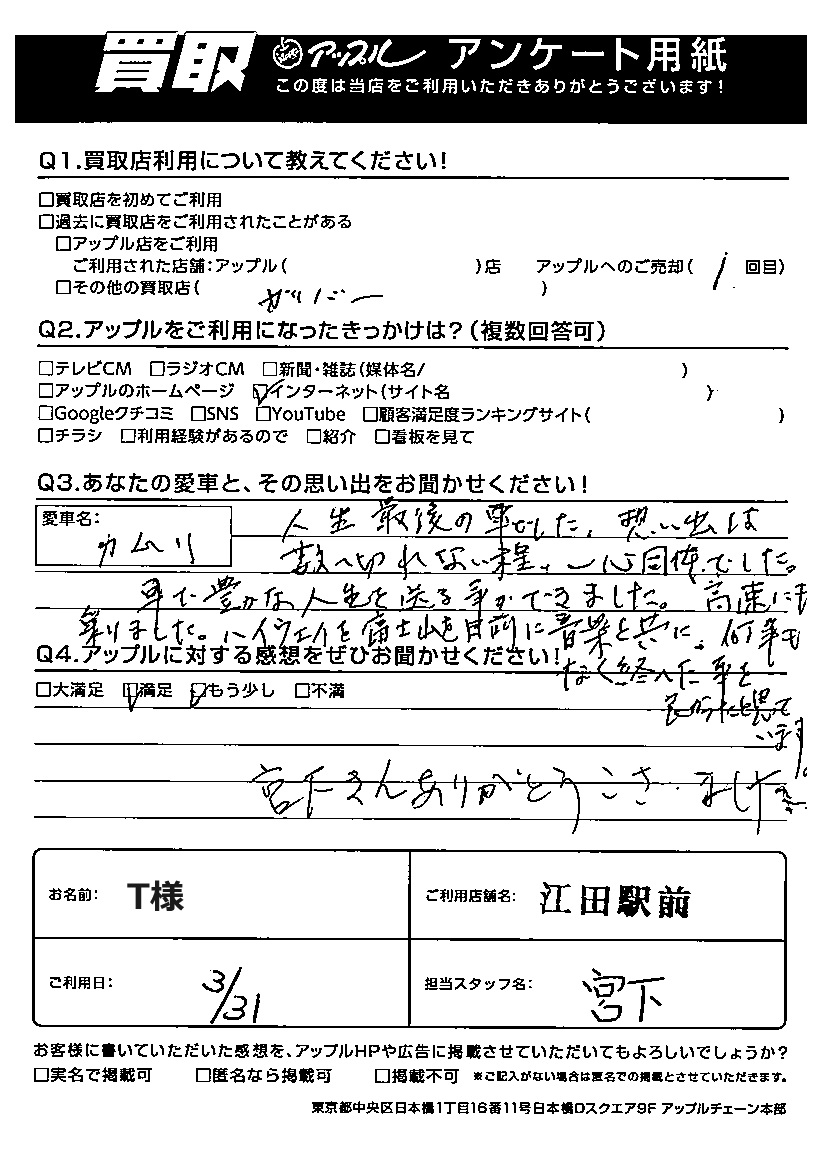 買取 アップル アンケート用紙
この度は当店をご利用いただきありがとうございます!
Q1.買取店利用について教えてください!
□買取店を初めてご利用
□過去に買取店をご利用されたことがある
□アップル店をご利用
ご利用された店舗:アップル( )店 アップルへのご売却( 1 回目)
□その他の買取店( ガリバー )
Q2.アップルをご利用になったきっかけは?(複数回答可)
□テレビCM □ラジオCM □新聞・雑誌(媒体名/ )
□アップルのホームページ ☑インターネット(サイト名 )
□Googleクチコミ □SNS □YouTube □顧客満足度ランキングサイト( )
□チラシ □利用経験があるので □紹介 □看板を見て
Q3.あなたの愛車と、その思い出をお聞かせください!
愛車名: カムリ
人生最後の車でした。想い出は
数へ切れない程、一心同体でした。
車で豊かな人生を送る事ができました。高速にも
乗りました。ハイウェイを富士山を目前に音楽と共に、何事も
なく終へた事を
良かったと思って
います。
Q4.アップルに対する感想をぜひお聞かせください!
□大満足 ☑満足 ☑もう少し □不満
宮下さんありがとうございました
お名前: T様
ご利用店舗名: 江田駅前
ご利用日: 3/31
担当スタッフ名: 宮下
お客様に書いていただいた感想を、アップルHPや広告に掲載させていただいてもよろしいでしょうか?
□実名で掲載可 □匿名なら掲載可 □掲載不可 ※ご記入がない場合は匿名での掲載とさせていただきます。
東京都中央区日本橋1丁目16番11号日本橋Dスクエア9F アップルチェーン本部